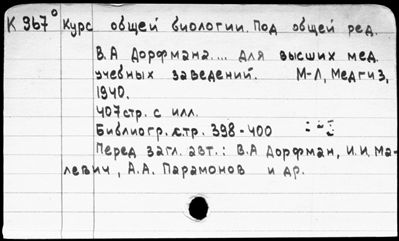 К 967⁰ Курс общей биологии. Под общей ред.
В.А Дорфмана.... Для высших мед.
учебных заведений. М-Л, Медгиз,
1940.
407 стр. с илл.
Библиогр. стр. 398-400
Перед загл. авт.: В.А Дорфман, И.И. Ма-
левич, А.А. Парамонов и др.